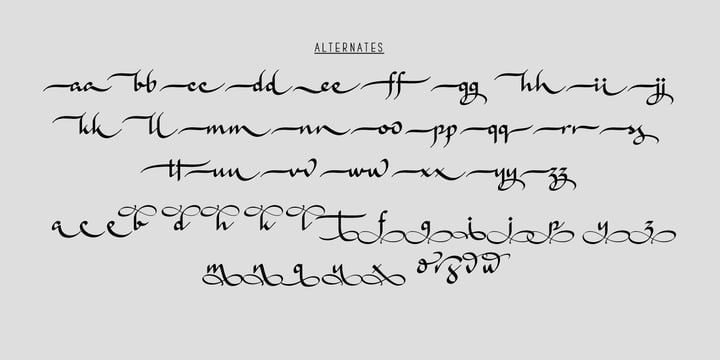 ALTERNATES
aa bb cc dd ee ff gg hh ii jj
kk ll mm nn oo pp qq rr ss
tt uu vv ww xx yy zz
a c e b d h k l t f g i j p y z
m n q u x o r s v w